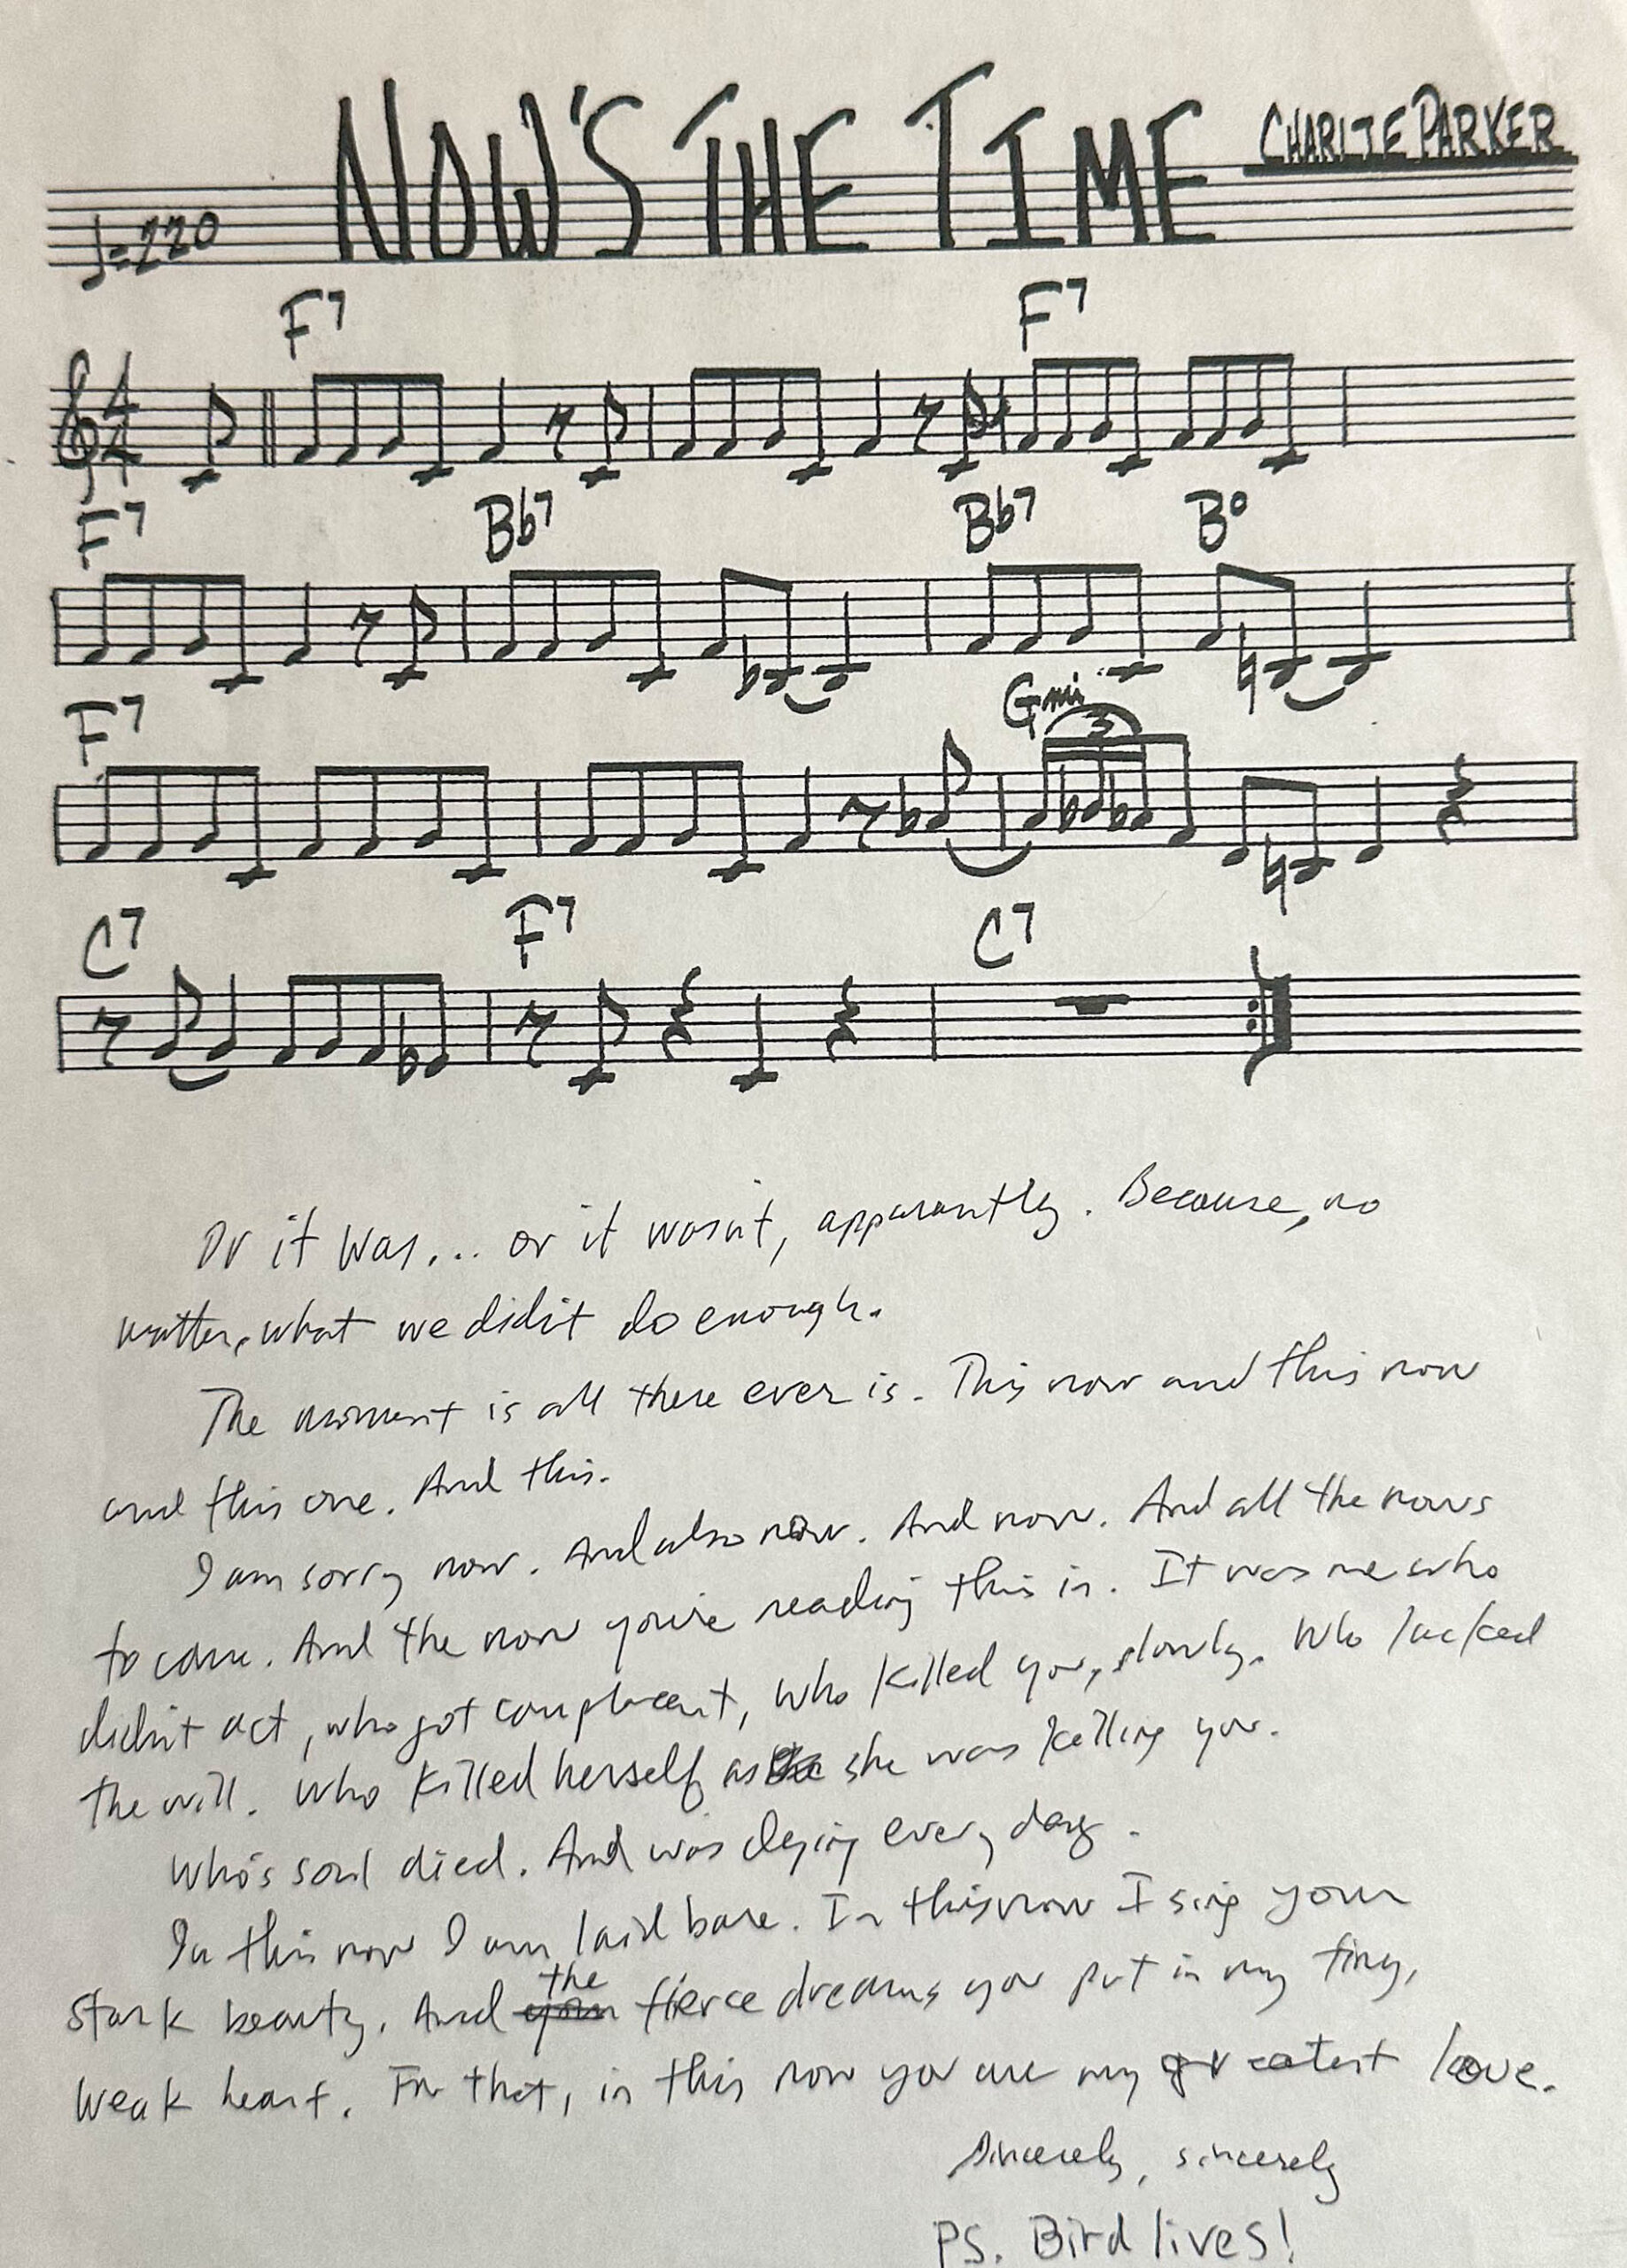 NOW'S THE TIME
CHARLIE PARKER
♩=220
F7 F7
4
4
F7 Bb7 Bb7 B°
F7 Gmi
3
C7 F7 C7
Or it was... or it wasn't, apparantly. Because, no
matter, what we didn't do enough.
The moment is all there ever is. This now and this now
and this one. And this.
I am sorry now. And also now. And now. And all the nows
to come. And the now you're reading this in. It was me who
didn't act, who got complacent, who killed you, slowly. Who lacked
the will. Who killed herself as she was killing you.
Who's soul died. And was dying every day.
In this now I am laid bare. In this now I sing your
stark beauty. And the fierce dreams you put in my tiny,
weak heart. For that, in this now you are my greatest love.
Sincerely, sincerely
PS. Bird lives!